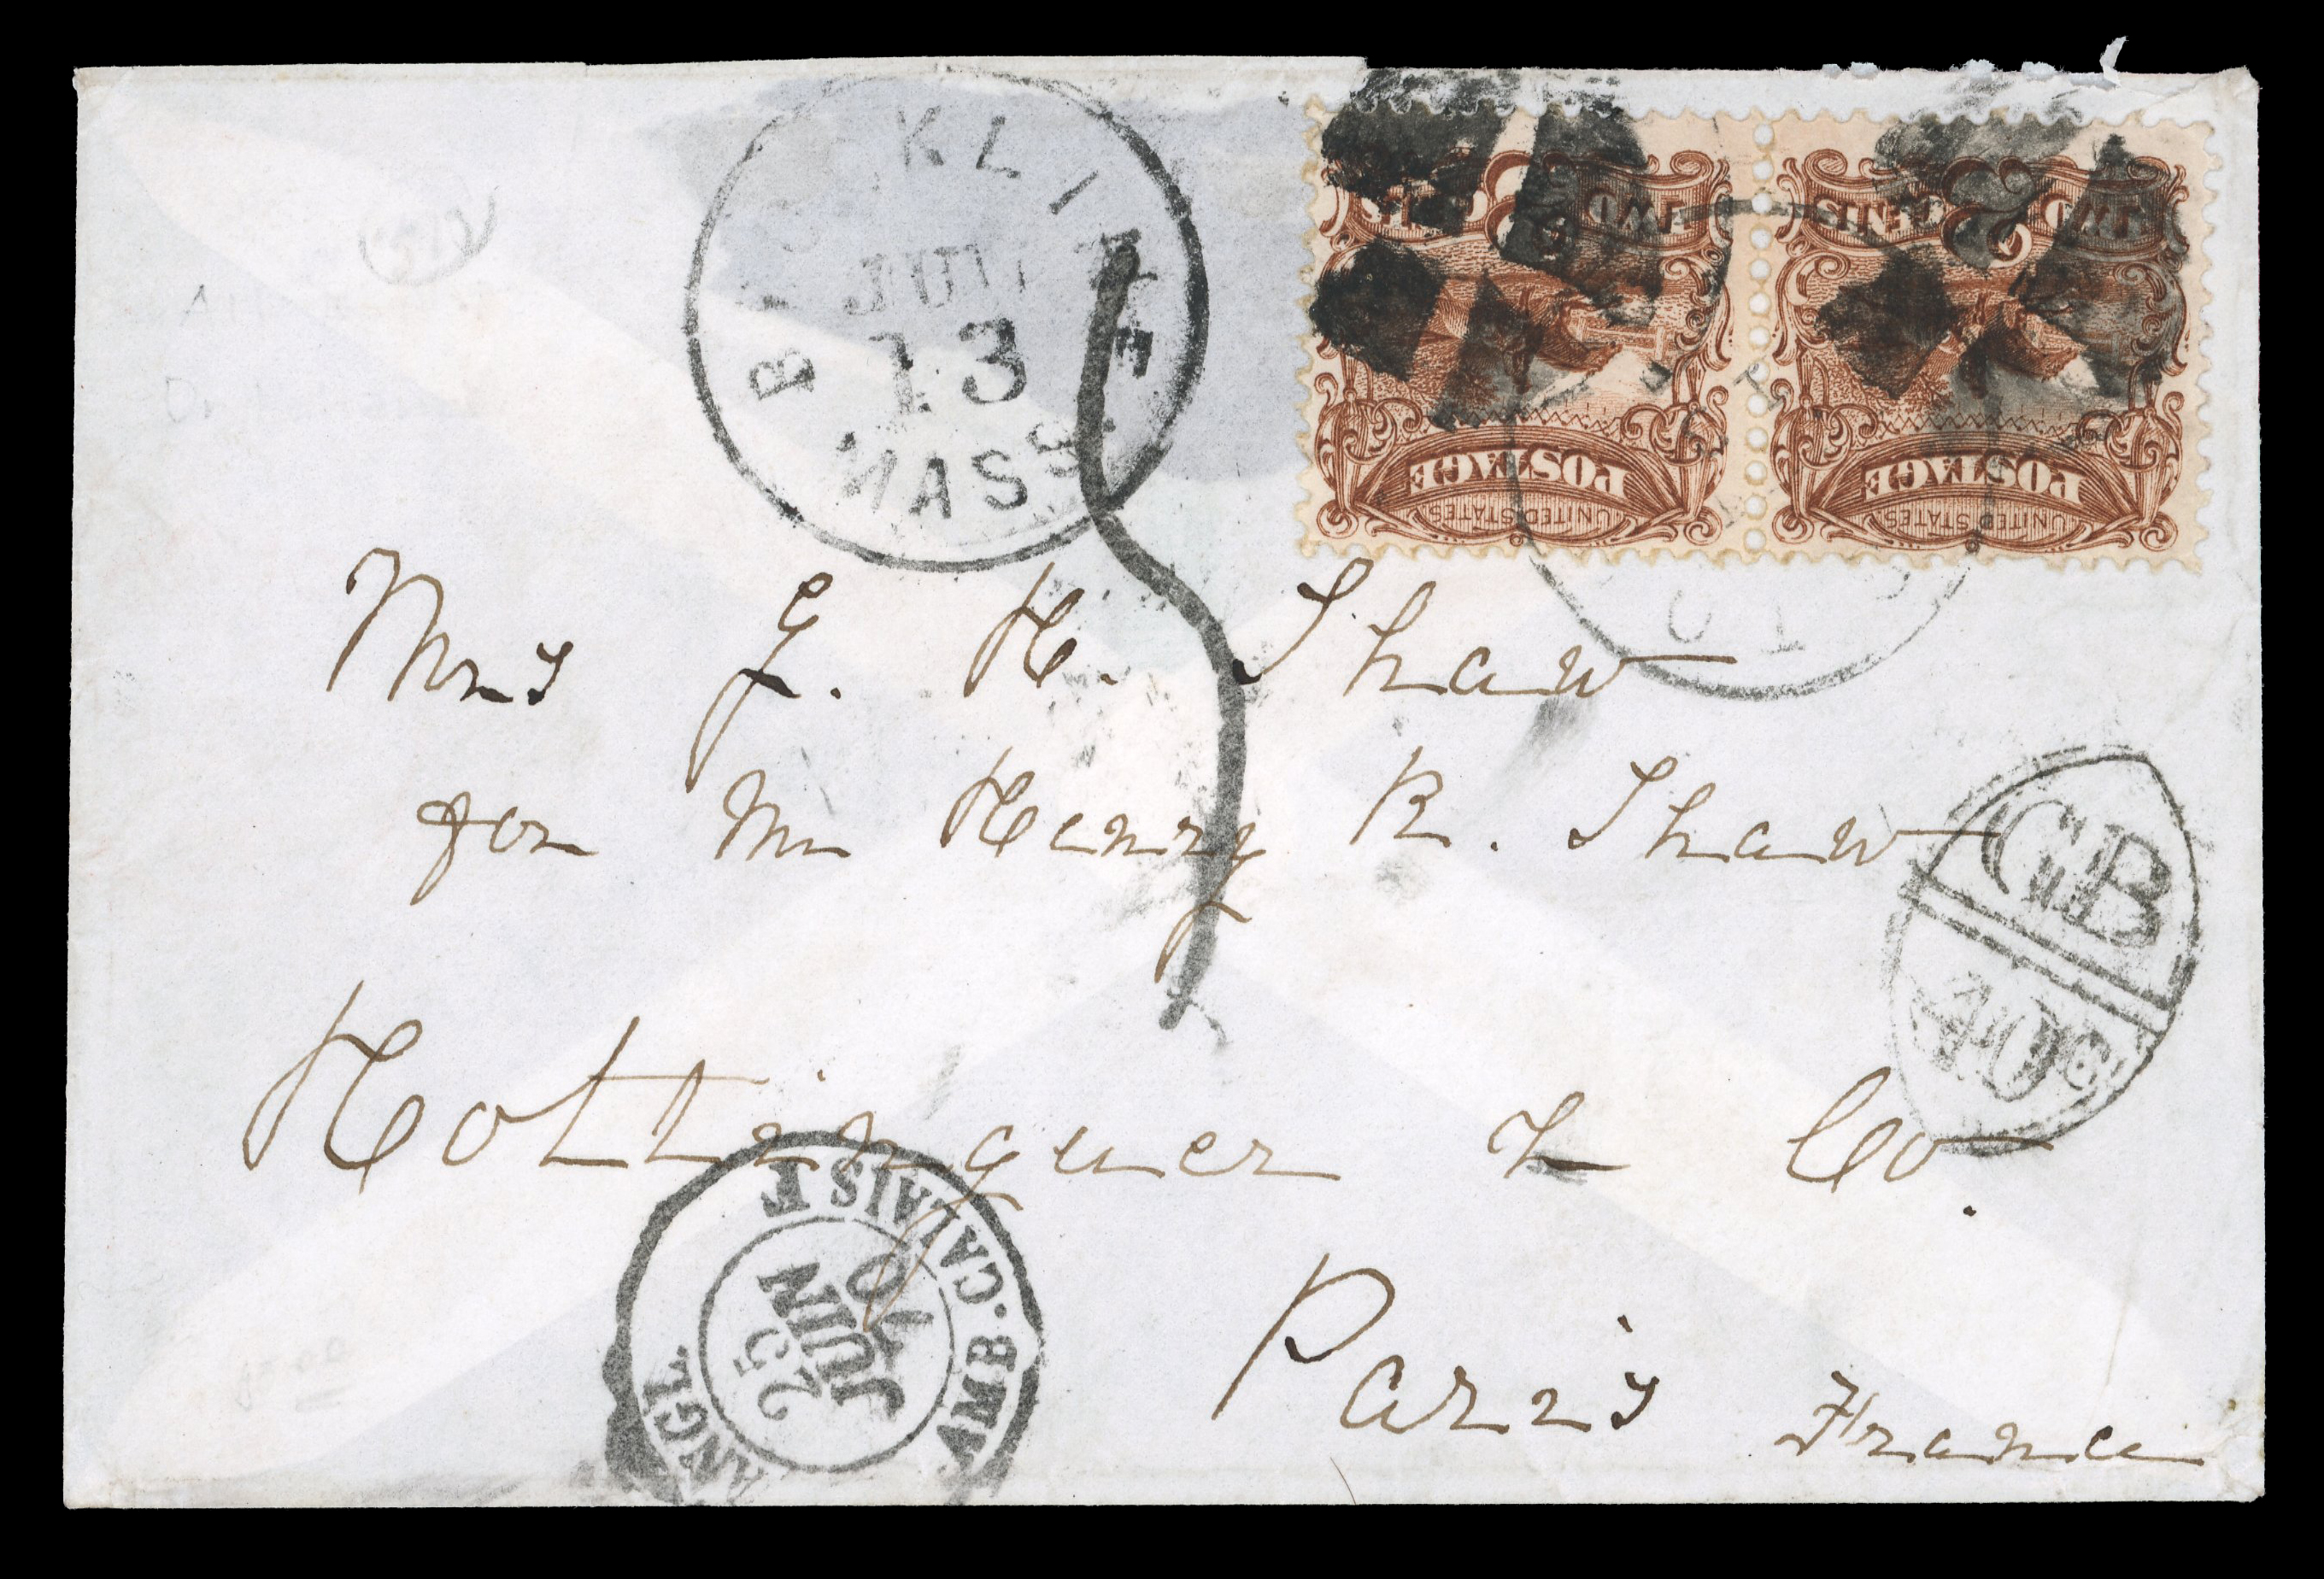 BROOKLINE
JUN
13
MASS.
TWO CENTS
2
POSTAGE
UNITED STATES
TWO CENTS
2
POSTAGE
UNITED STATES
Mrs G. H. Shaw
for Mr Henry R. Shaw
GB
40c
Hottinguer & Co.
ANGL. AMB. CALAIS F
25
JUIN
70
Paris France